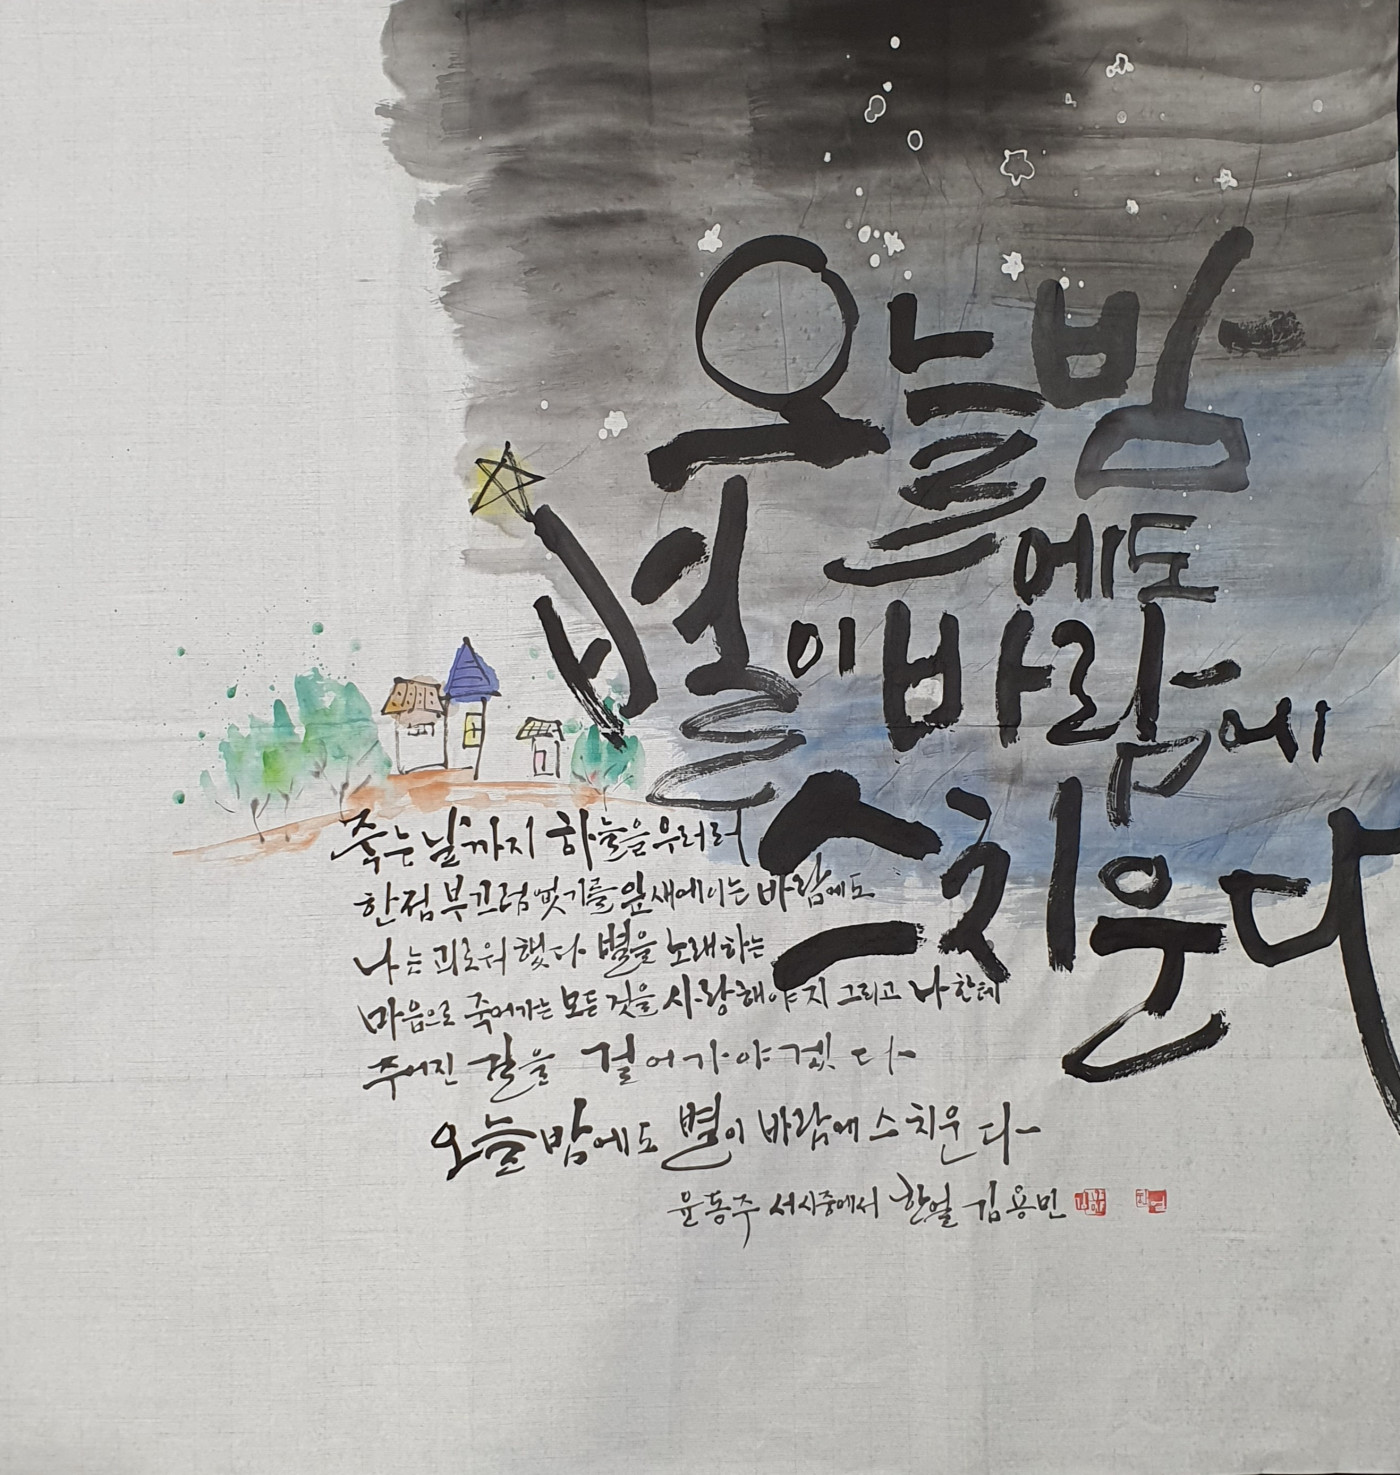 오늘밤
에도
별이 바람에
스치운다
죽는 날까지 하늘을 우러러
한점 부끄럼 없기를 잎새에 이는 바람에도
나는 괴로워했다 별을 노래하는
마음으로 죽어가는 모든 것을 사랑해야지 그리고 나한테
주어진 길을 걸어가야겠다
오늘밤에도 별이 바람에 스치운다
윤동주 서시중에서 한얼 김용민